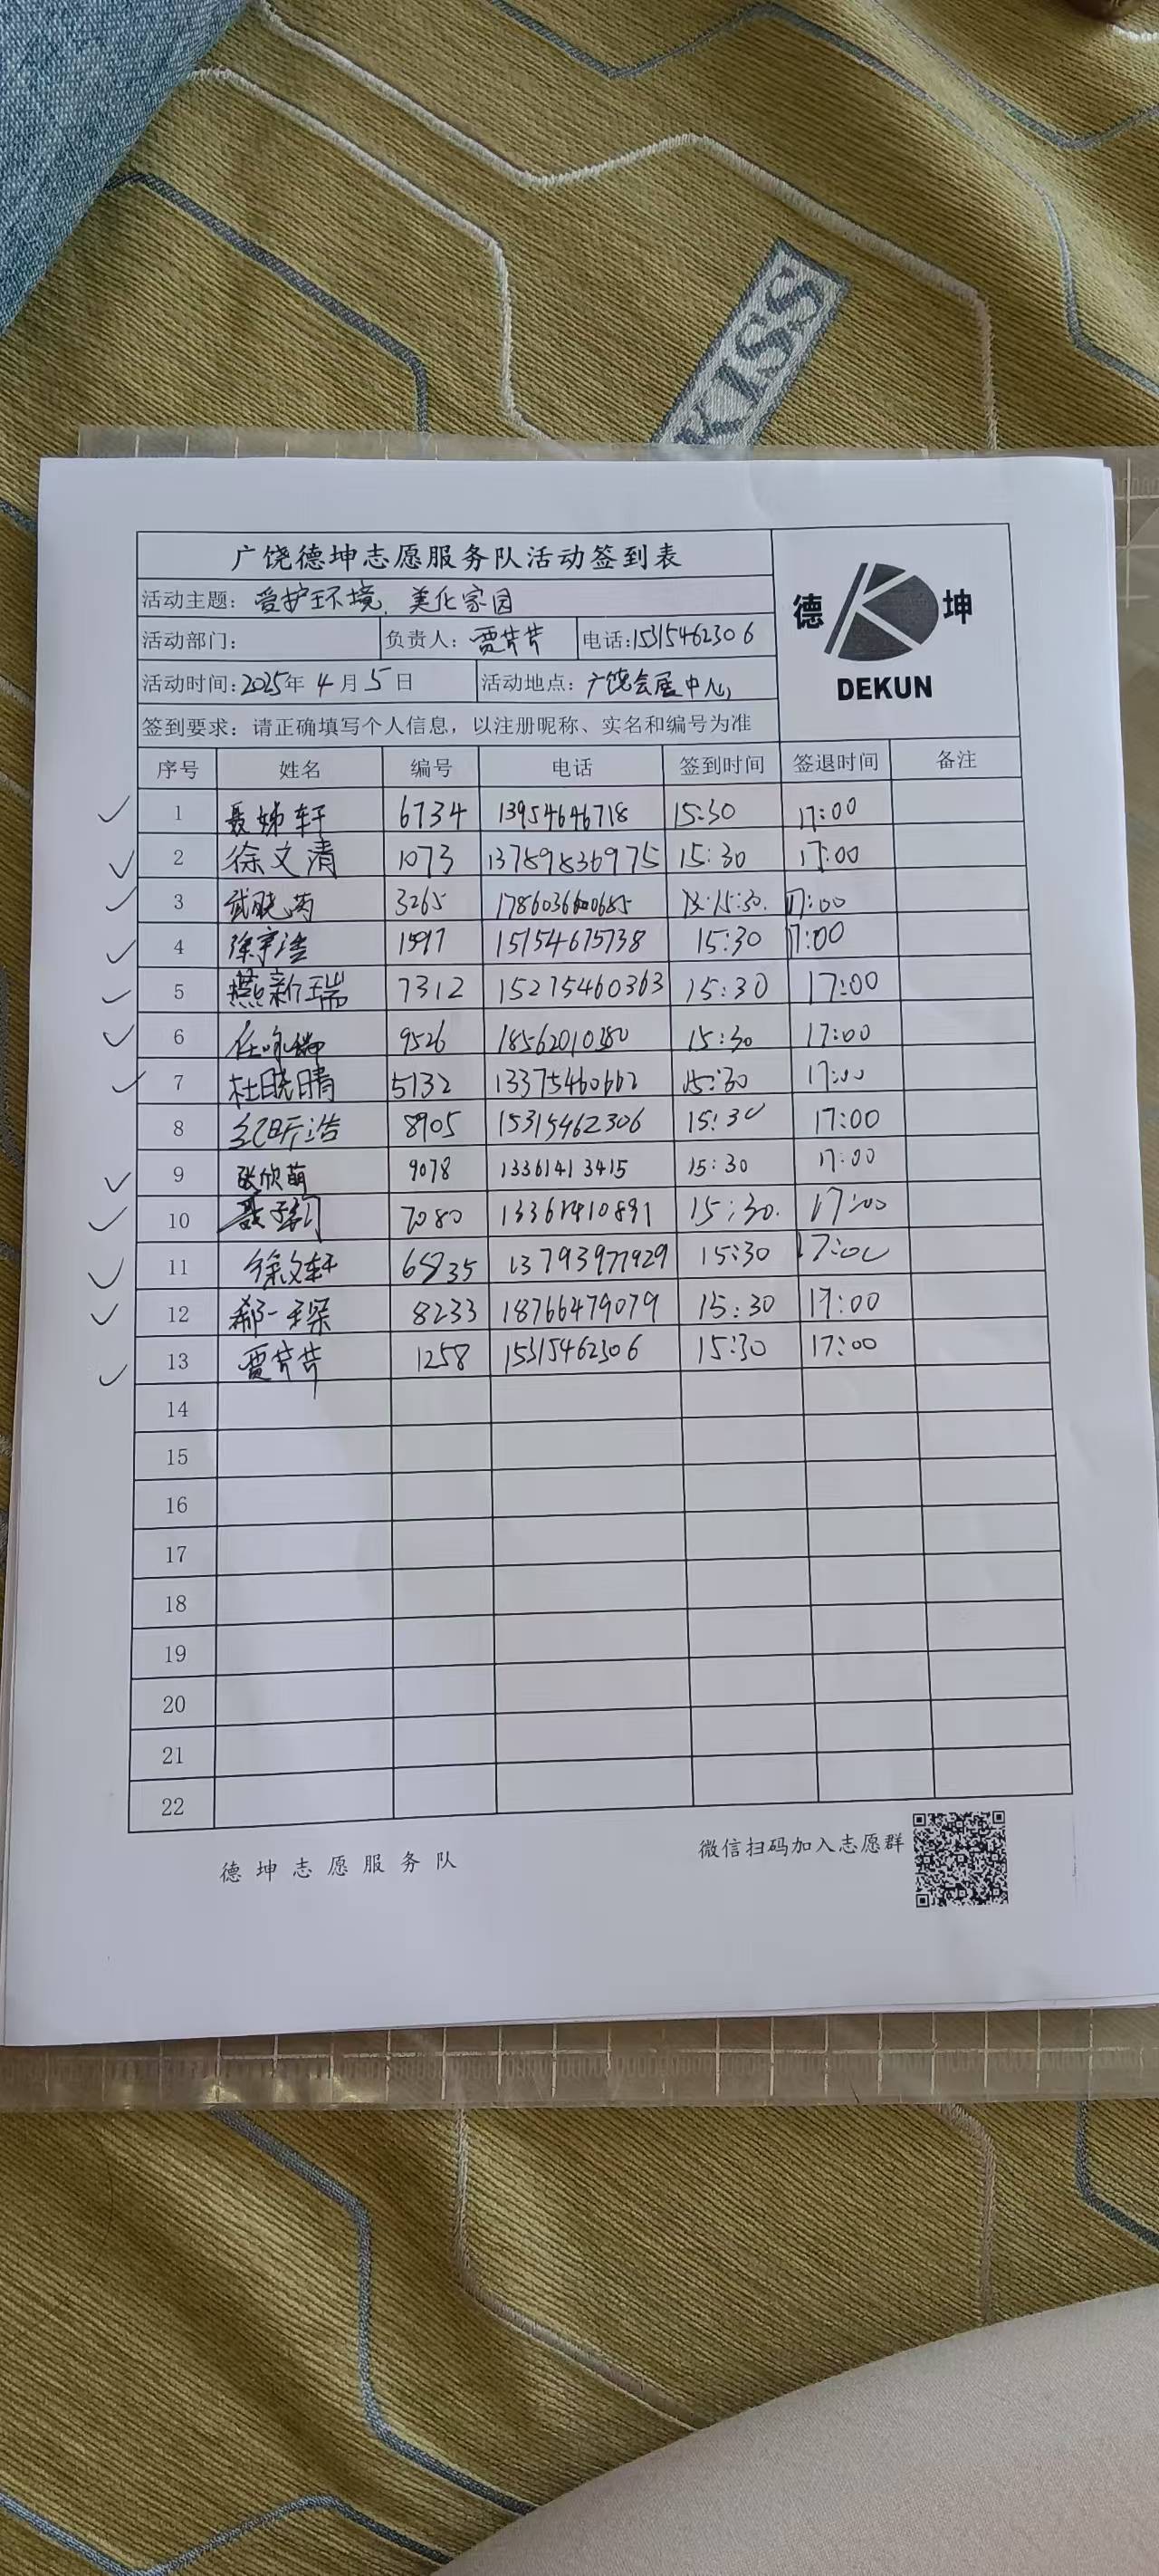 KISS
广饶德坤志愿服务队活动签到表
德 坤
DEKUN
活动主题：爱护环境，美化家园
活动部门： 负责人：贾芹芹 电话：15315462306
活动时间：2025年4月5日 活动地点：广饶会展中心
签到要求：请正确填写个人信息，以注册昵称、实名和编号为准
序号 姓名 编号 电话 签到时间 签退时间 备注
1 聂娣轩 6734 13954646718 15:30 17:00
2 徐文清 1073 137898369775 15:30 17:00
3 3265 15:30 17:00
4 徐宇浩 1597 15154675738 15:30 17:00
5 燕新瑞 7312 15275460363 15:30 17:00
6 9526 15:30 17:00
7 杜晓晴 5132 13375460662 15:30 17:00
8 纪昕浩 8905 15315462306 15:30 17:00
9 张欣萌 9078 1336141 3415 15:30 17:00
10 7080 15:30 17:00
11 徐文轩 13793977929 15:30 17:00
12 郝一琛 8233 18766479079 15:30 17:00
13 贾芹芹 1258 15315462306 15:30 17:00
14
15
16
17
18
19
20
21
22
德坤志愿服务队
微信扫码加入志愿群